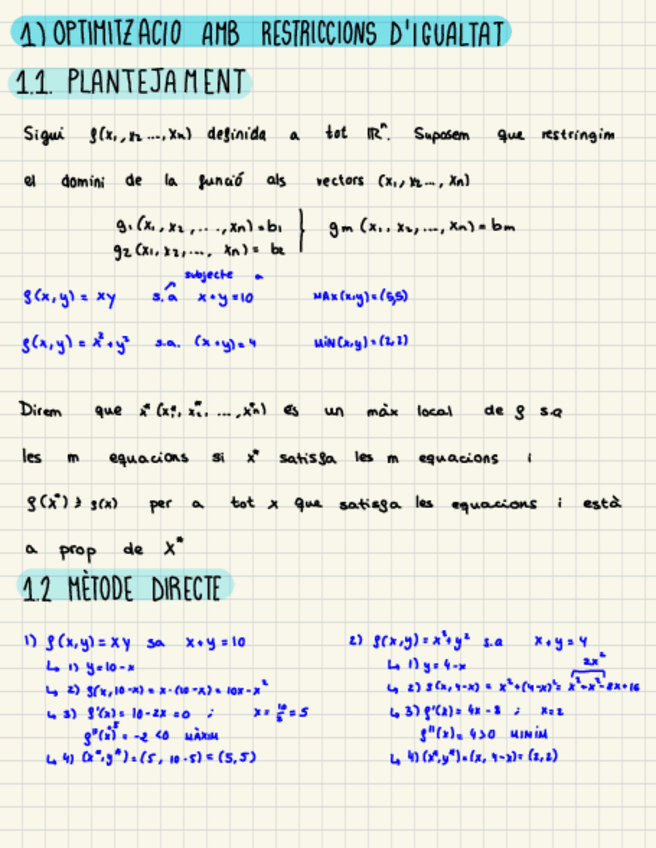 1) OPTIMITZACIO AMB RESTRICCIONS D'IGUALTAT
1.1. PLANTEJAMENT
Sigui f(x₁, x₂ ..., xn) definida a tot ℝⁿ. Suposem que restringim
el domini de la funció als vectors (x₁, x₂ ..., xn)
g₁ (x₁, x₂, ..., xn) = b₁ } gm (x₁, x₂, ..., xn) = bm
g₂ (x₁, x₂, ..., xn) = b₂
subjecte a
f(x,y) = xy s.a x+y=10 MAX (x,y) = (5,5)
f(x,y) = x²+y² s.a. (x+y)=4 MIN (x,y) = (2,2)
Direm que x* (x₁*, x₂*, ..., xn*) es un màx local de f s.a
les m equacions si x* satisfa les m equacions i
f(x*) ≥ f(x) per a tot x que satisfa les equacions i està
a prop de x*
1.2 MÈTODE DIRECTE
1) f(x,y) = xy sa x+y=10
↳ 1) y=10-x
↳ 2) f(x, 10-x) = x·(10-x) = 10x-x²
↳ 3) f'(x) = 10-2x=0 ; x = 10/2 = 5
f''(x) = -2 <0 MÀXIM
↳ 4) (x*,y*) = (5, 10-5) = (5,5)
2) f(x,y) = x²+y² s.a x+y=4
↳ 1) y=4-x
2x²
↳ 2) f(x, 4-x) = x²+(4-x)² = x²+x²-8x+16
↳ 3) f'(x) = 4x-8 ; x=2
f''(x) = 4>0 MINIM
↳ 4) (x*,y*) = (x, 4-x) = (2,2)